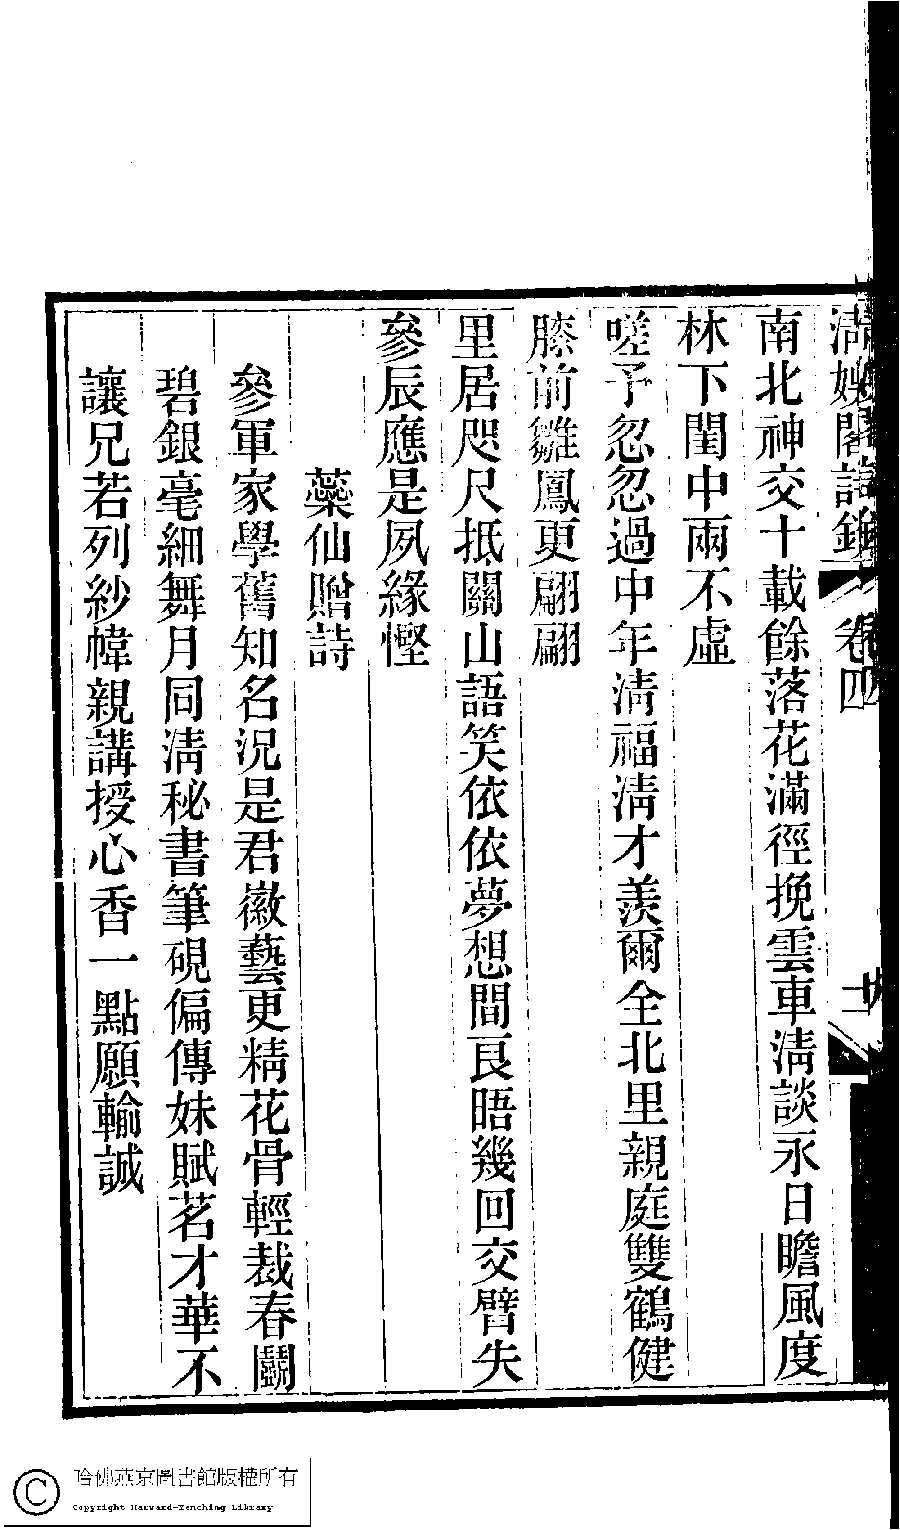 南北神交十載餘落花滿徑挽雲車淸談永日瞻風度
林下閨中兩不虛
嗟予忽忽過中年淸福淸才羨爾全北里親庭雙鶴健
膝前雛鳳更翩翩
里居咫尺抵關山語笑依依夢想間艮晤幾回交臂失
參辰應是夙緣慳
藥仙贈詩
參軍家學舊知名況是君徽藝更精花骨輕裁春鬬
碧銀毫細舞月同淸秘書筆硯偏傳妹賦茗才華不
讓兄若列紗幃親講授心香一點願輸誠
卷四
哈佛燕京圖書館版權所有
Copyright Harvard-Yenching Library